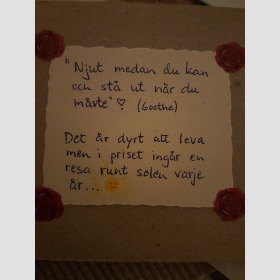 "Njut medan du kan
och stå ut när du
måste" ♡ (Goethe)
Det är dyrt att leva
men i priset ingår en
resa runt solen varje
år...